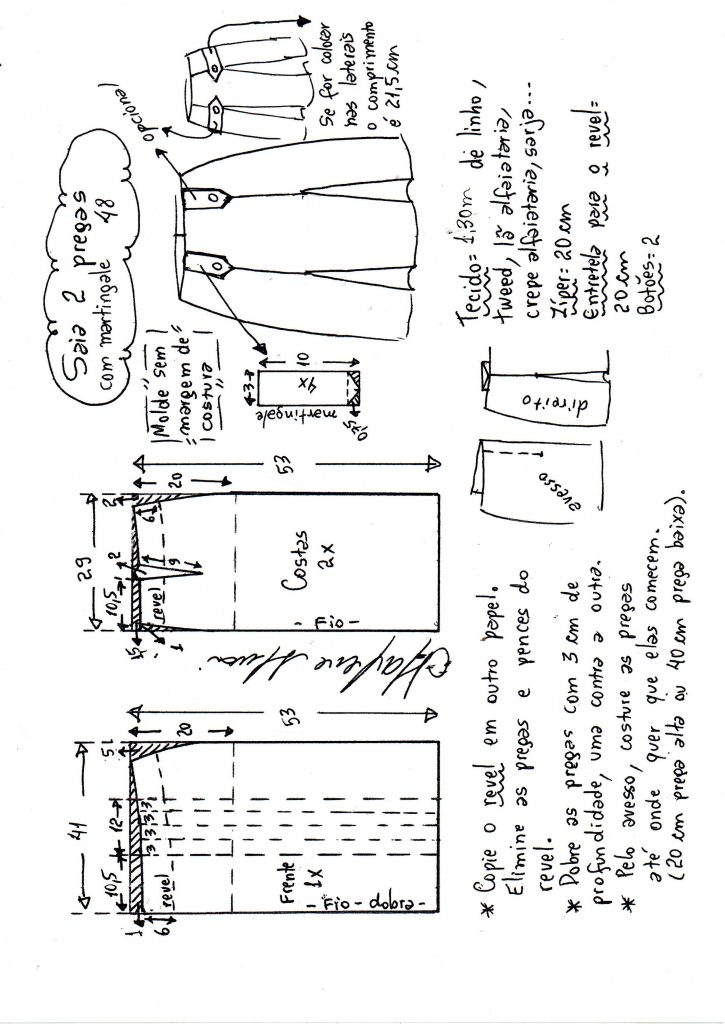 Saia 2 pregas
com martingale 48
opcional
Se for colocar
nas laterais
o comprimento
é 21,5 cm
"Molde sem
margem de
costura"
3
10
4x
martingale
0,75
41
10,5
12
5
3 3 3 3
1
6
revel
20
53
Frente
1x
- Fio - dobra -
29
10,5
2
2
1,5
1
revel
9
6
20
53
Costas
2x
- Fio -
Tecido= 1,30m de linho,
tweed, lã alfaiataria,
crepe alfaiataria, sarja...
Zíper= 20 cm
Entretela para o revel=
20 cm
Botões= 2
avesso
direito
* Copie o revel em outro papel.
Elimine as pregas e pences do
revel.
* Dobre as pregas com 3 cm de
profundidade, uma contra a outra.
* Pelo avesso, costure as pregas
até onde quer que elas comecem.
(20 cm prega alta ou 40 cm prega baixa).